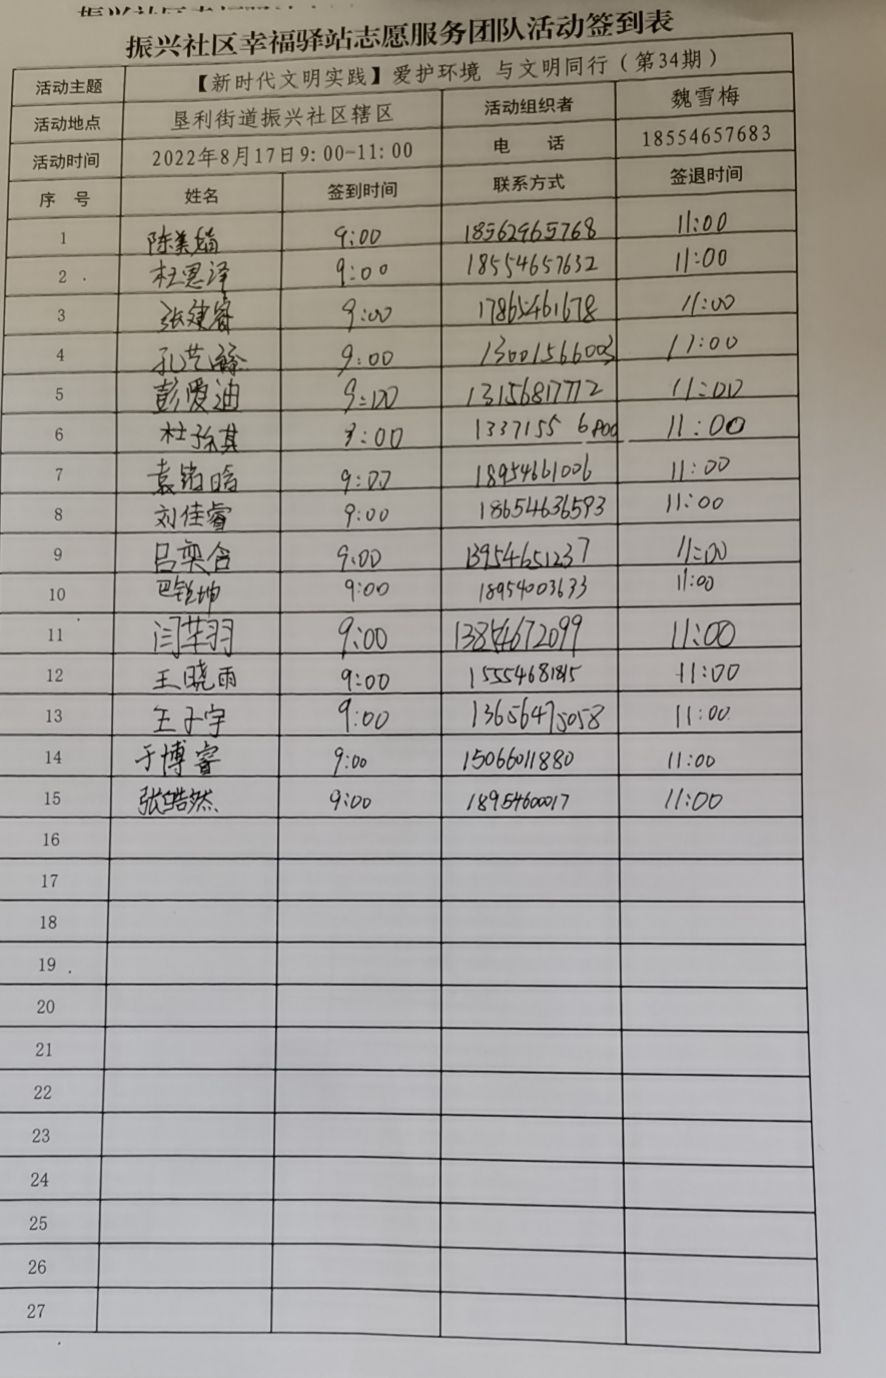 振兴社区幸福驿站志愿服务团队活动签到表
活动主题 【新时代文明实践】爱护环境 与文明同行（第34期）
活动地点 垦利街道振兴社区辖区 活动组织者 魏雪梅
活动时间 2022年8月17日9:00-11:00 电 话 18554657683
序 号 姓名 签到时间 联系方式 签退时间
1 陈美 9:00 18562965768 11:00
2 杜思泽 9:00 18554657632 11:00
3 张建睿 9:00 17865461678 11:00
4 孔艺 9:00 13001566003 11:00
5 彭爱迪 9:00 13156817772 11:00
6 杜子祺 9:00 1337155 11:00
7 袁铭晗 9:00 18954661006 11:00
8 刘佳睿 9:00 18654636593 11:00
9 吕奕含 9:00 13954651237 11:00
10 巴钰坤 9:00 18954003633 11:00
11 闫芊羽 9:00 13854672099 11:00
12 王晓雨 9:00 15554681815 11:00
13 王子宇 9:00 13656475058 11:00
14 于博睿 9:00 15066011880 11:00
15 张皓然 9:00 18954600017 11:00
16
17
18
19
20
21
22
23
24
25
26
27